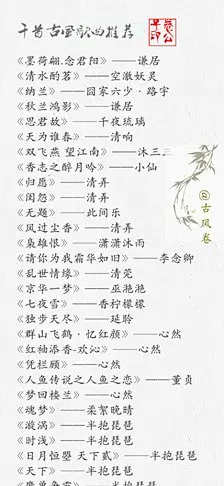 千首古风歌曲推荐
《墨荷翩.念君阳》——谦居
《清水酌茗》——空激妖灵
《纳兰》——囧家六少·路宇
《秋兰鸿影》——谦居
《思君故》——千夜琉璃
《天为谁春》——清响
《双飞燕 望江南》——沐三三
《香志之醉月吟》——小仙
《归愿》——清弄
《闺怨》——清弄
《无题》——此间乐
《风过尘香》——清弄
《枭雄恨》——潇潇沐雨
《请你为我霜华如旧》——李念卿
《乱世情缘》——清莞
《京华一梦》——巫滟滟
《七夜雪》——香柠檬檬
《独步天尽》——延聆
《群山飞鹤·忆红颜》——心然
《红袖添香·欢沁》——心然
《凭栏顾》——心然
《人鱼传说之人鱼之恋》——董贞
《梦回楼兰》——心然
《魂梦》——柔絮晚晴
《漩涡》——半抱琵琶
《时浅》——半抱琵琶
《日月恒曌 天下贰》——半抱琵琶
《天下》——半抱琵琶
古风卷